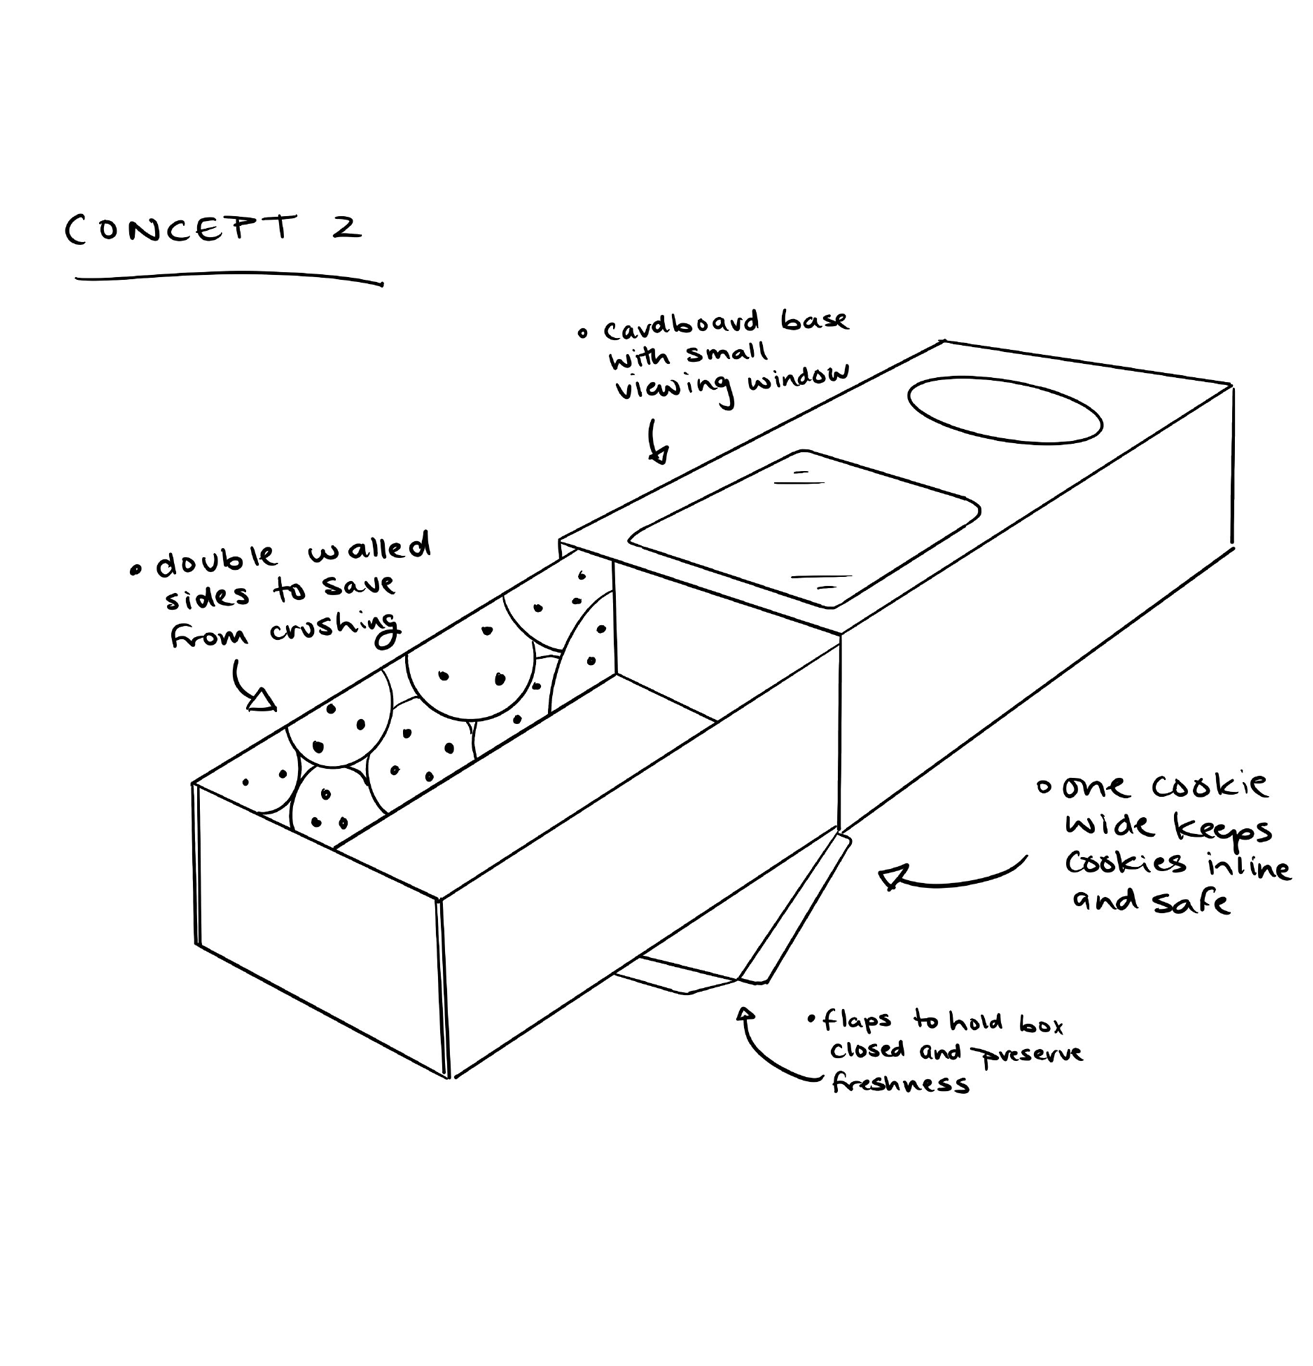 CONCEPT 2
• cardboard base
with small
viewing window
• double walled
sides to save
from crushing
• one cookie
wide keeps
cookies inline
and safe
• flaps to hold box
closed and preserve
freshness